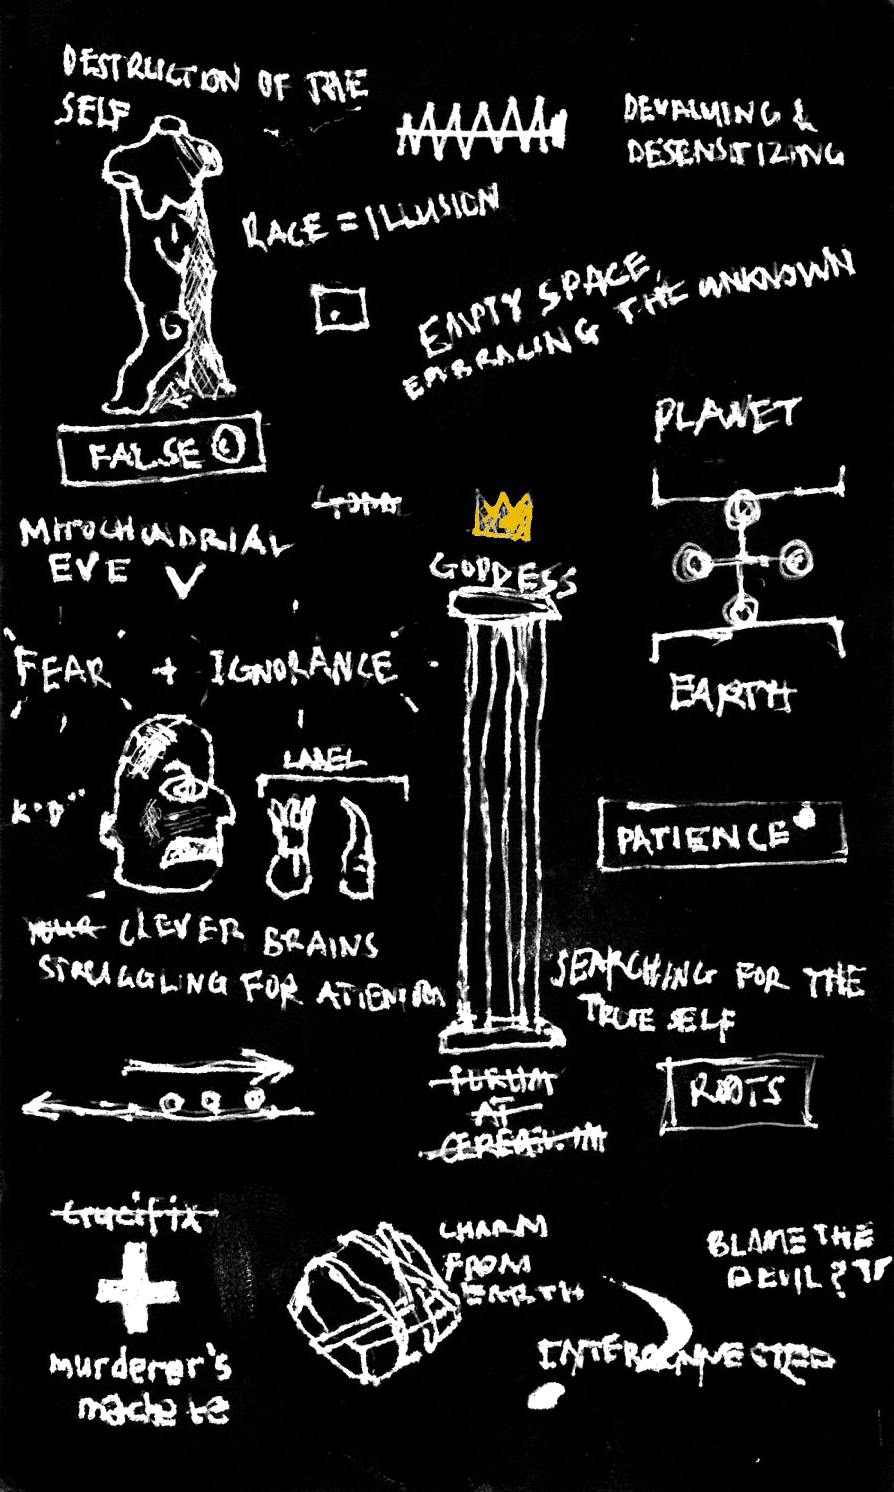 DESTRUCTION OF THE
SELF
DEVALUING &
DESENSITIZING
RACE = ILLUSION
EMPTY SPACE,
EMBRACING THE UNKNOWN
FALSE
PLANET
MITOCHONDRIAL
EVE
GODDESS
FEAR + IGNORANCE
EARTH
LABEL
PATIENCE
YOUR CLEVER BRAINS
STRUGGLING FOR ATTENTION
SEARCHING FOR THE
TRUE SELF
FORUM
AT
ROOTS
crucifix
CHARM
FROM
EARTH
BLAME THE
DEVIL?
INTERCONNECTED
murderer's
machete